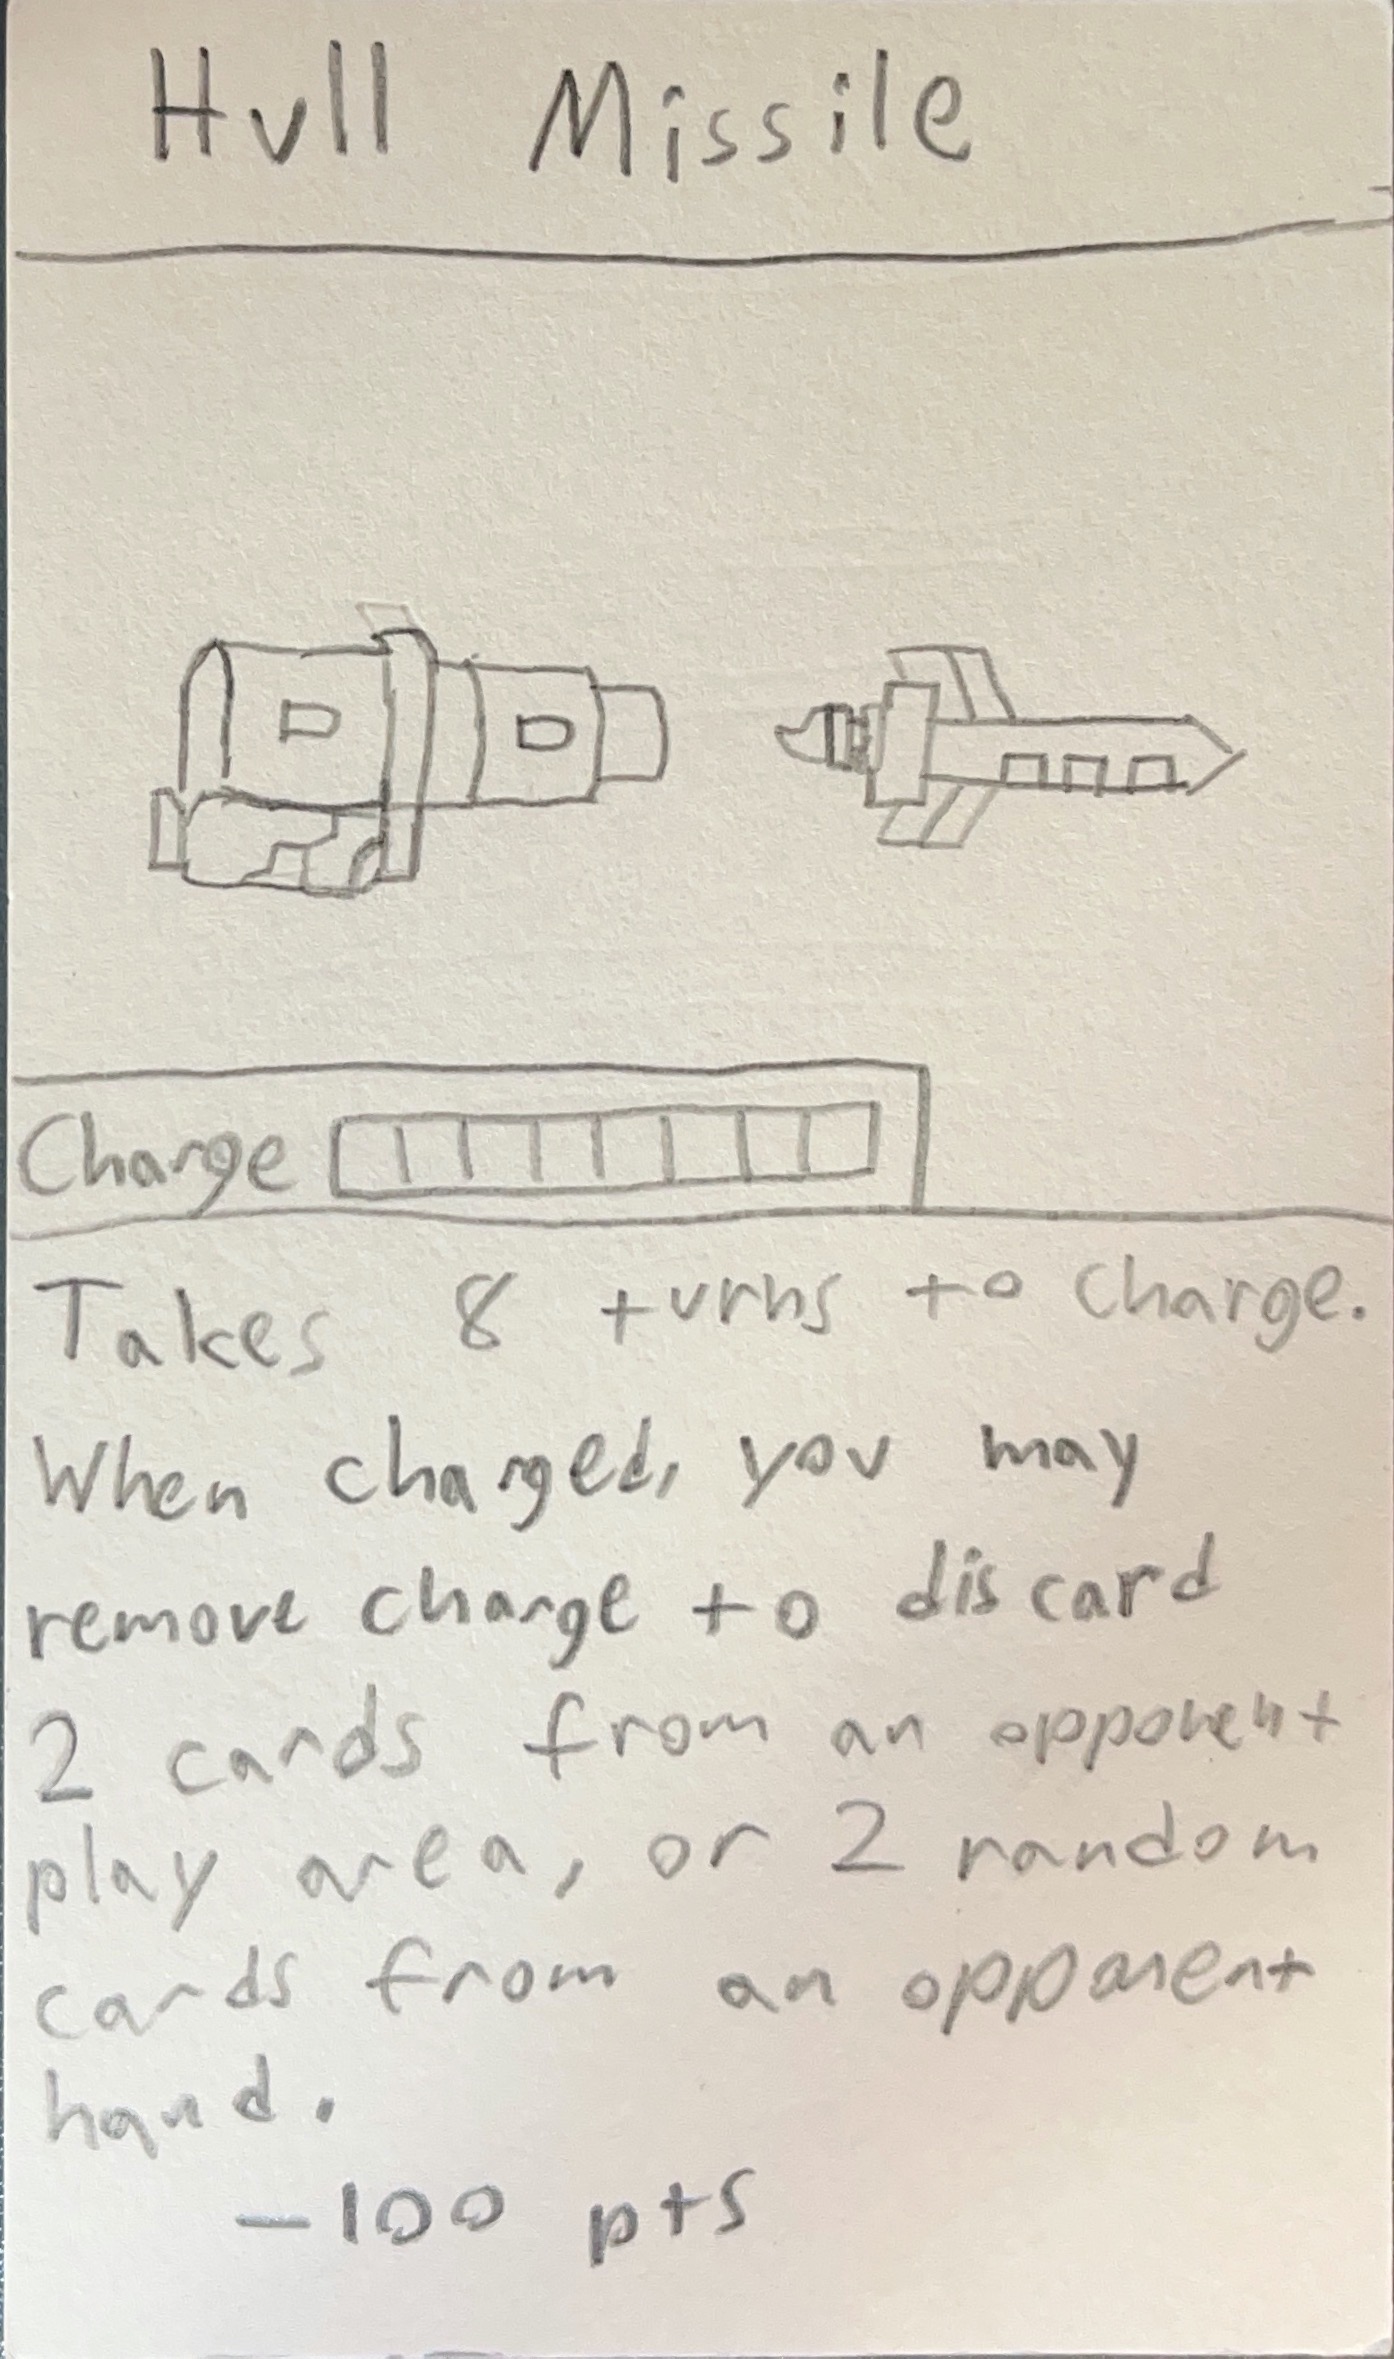 Hull Missile
Charge
Takes 8 turns to charge.
When charged, you may
remove charge to discard
2 cards from an opponent
play area, or 2 random
cards from an opponent
hand.
-100 pts